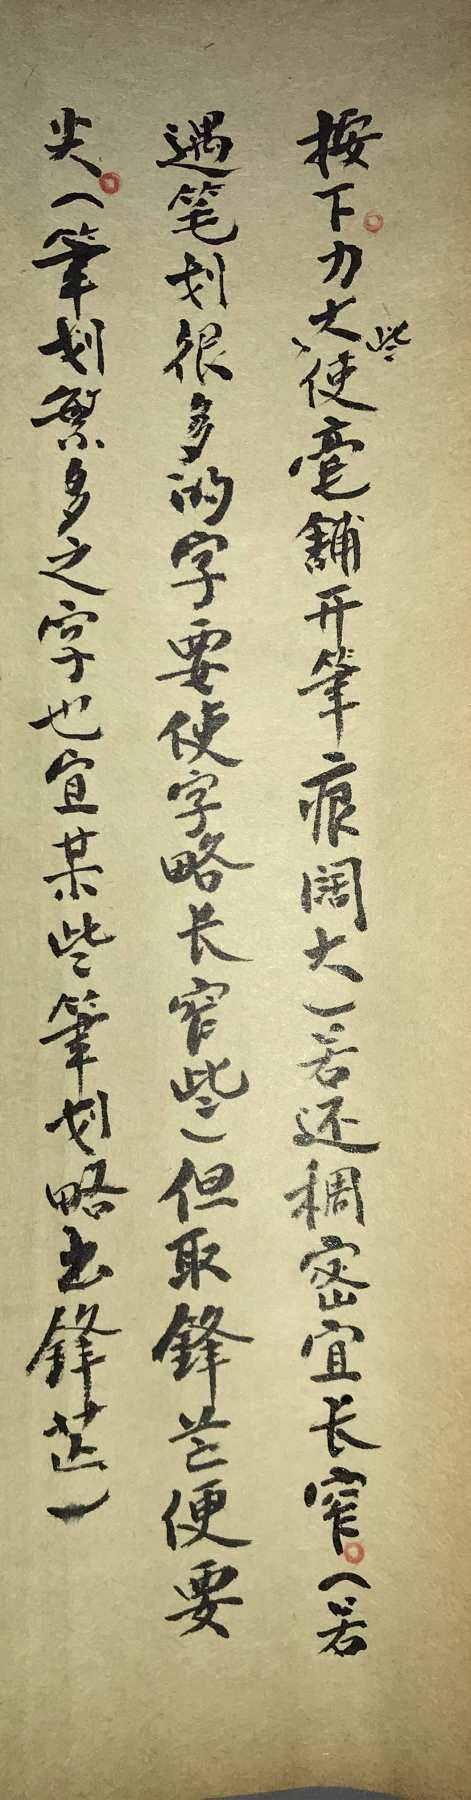 按下。力大些使毫舖开筆痕阔大)若还稠密宜长窄。(若
遇笔划很多的字要使字略长窄些)但取鋒芒便要
尖。(筆划繁多之字也宜某些筆划略出鋒芒)